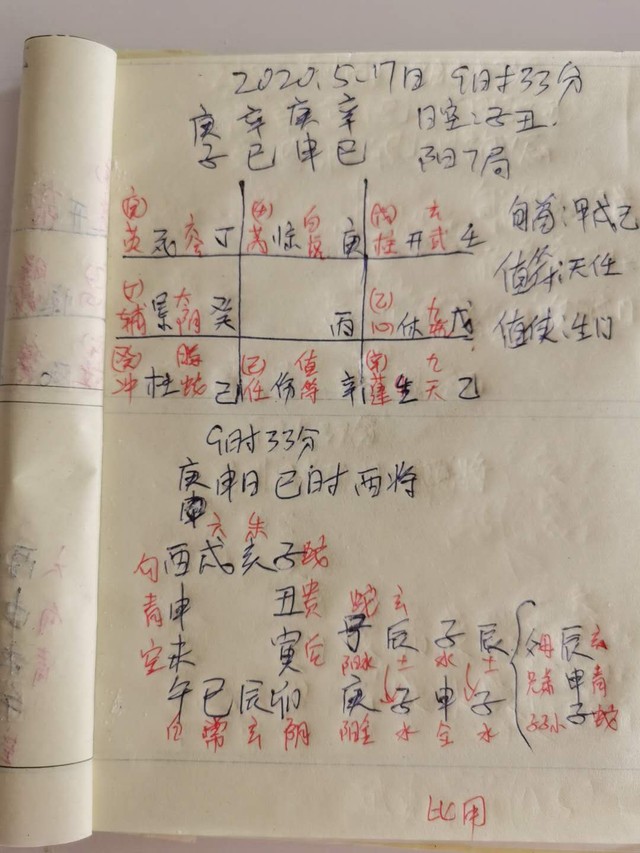 2020.5.17日 9时33分
庚 辛 庚 辛 日空:子丑.
子 巳 申 巳 阳7局
旬首:甲戌己
值符:天任
值使:生门
(庚) 英 死 六合 丁
芮 惊 白虎 庚
柱 开 玄武 壬
(丁) 辅 景 太阴 癸
丙
(乙) 心 休 九地 戊
(癸) 冲 杜 腾蛇 己
(己) 任 伤 值符 辛
(辛) 蓬 生 九天 乙
9时33分
庚申日 巳时 酉将
六 朱
勾 酉 戌 亥 子 蛇
青 申 丑 贵
空 未 寅 后
午 巳 辰 卯
白 常 玄 阴
蛇 玄
子 辰 子 辰
阳水 土 水 土
庚 子 申 子
阳金 水 金 水
父母 辰 玄
兄弟 申 青
子 蛇
比用